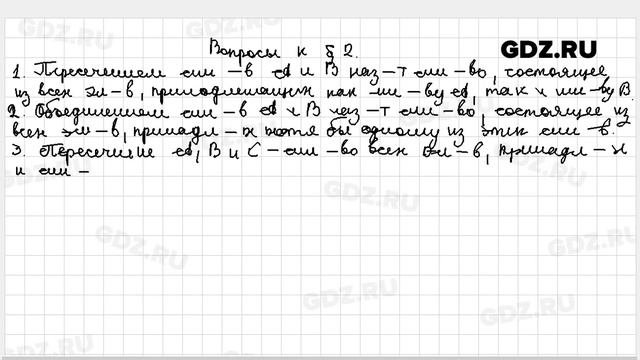 Вопросы к § 2.
GDZ.RU
1. Пересечением мн-в A и B наз-т мн-во, состоящее
из всех эл-в, принадлежащих как мн-ву A, так и мн-ву B
2. Объединением мн-в A и B наз-т мн-во, состоящее из
всех эл-в, принадл-х хотя бы одному из этих мн-в.
3. Пересечение A, B и C - мн-во всех эл-в, принадл-х
и мн-